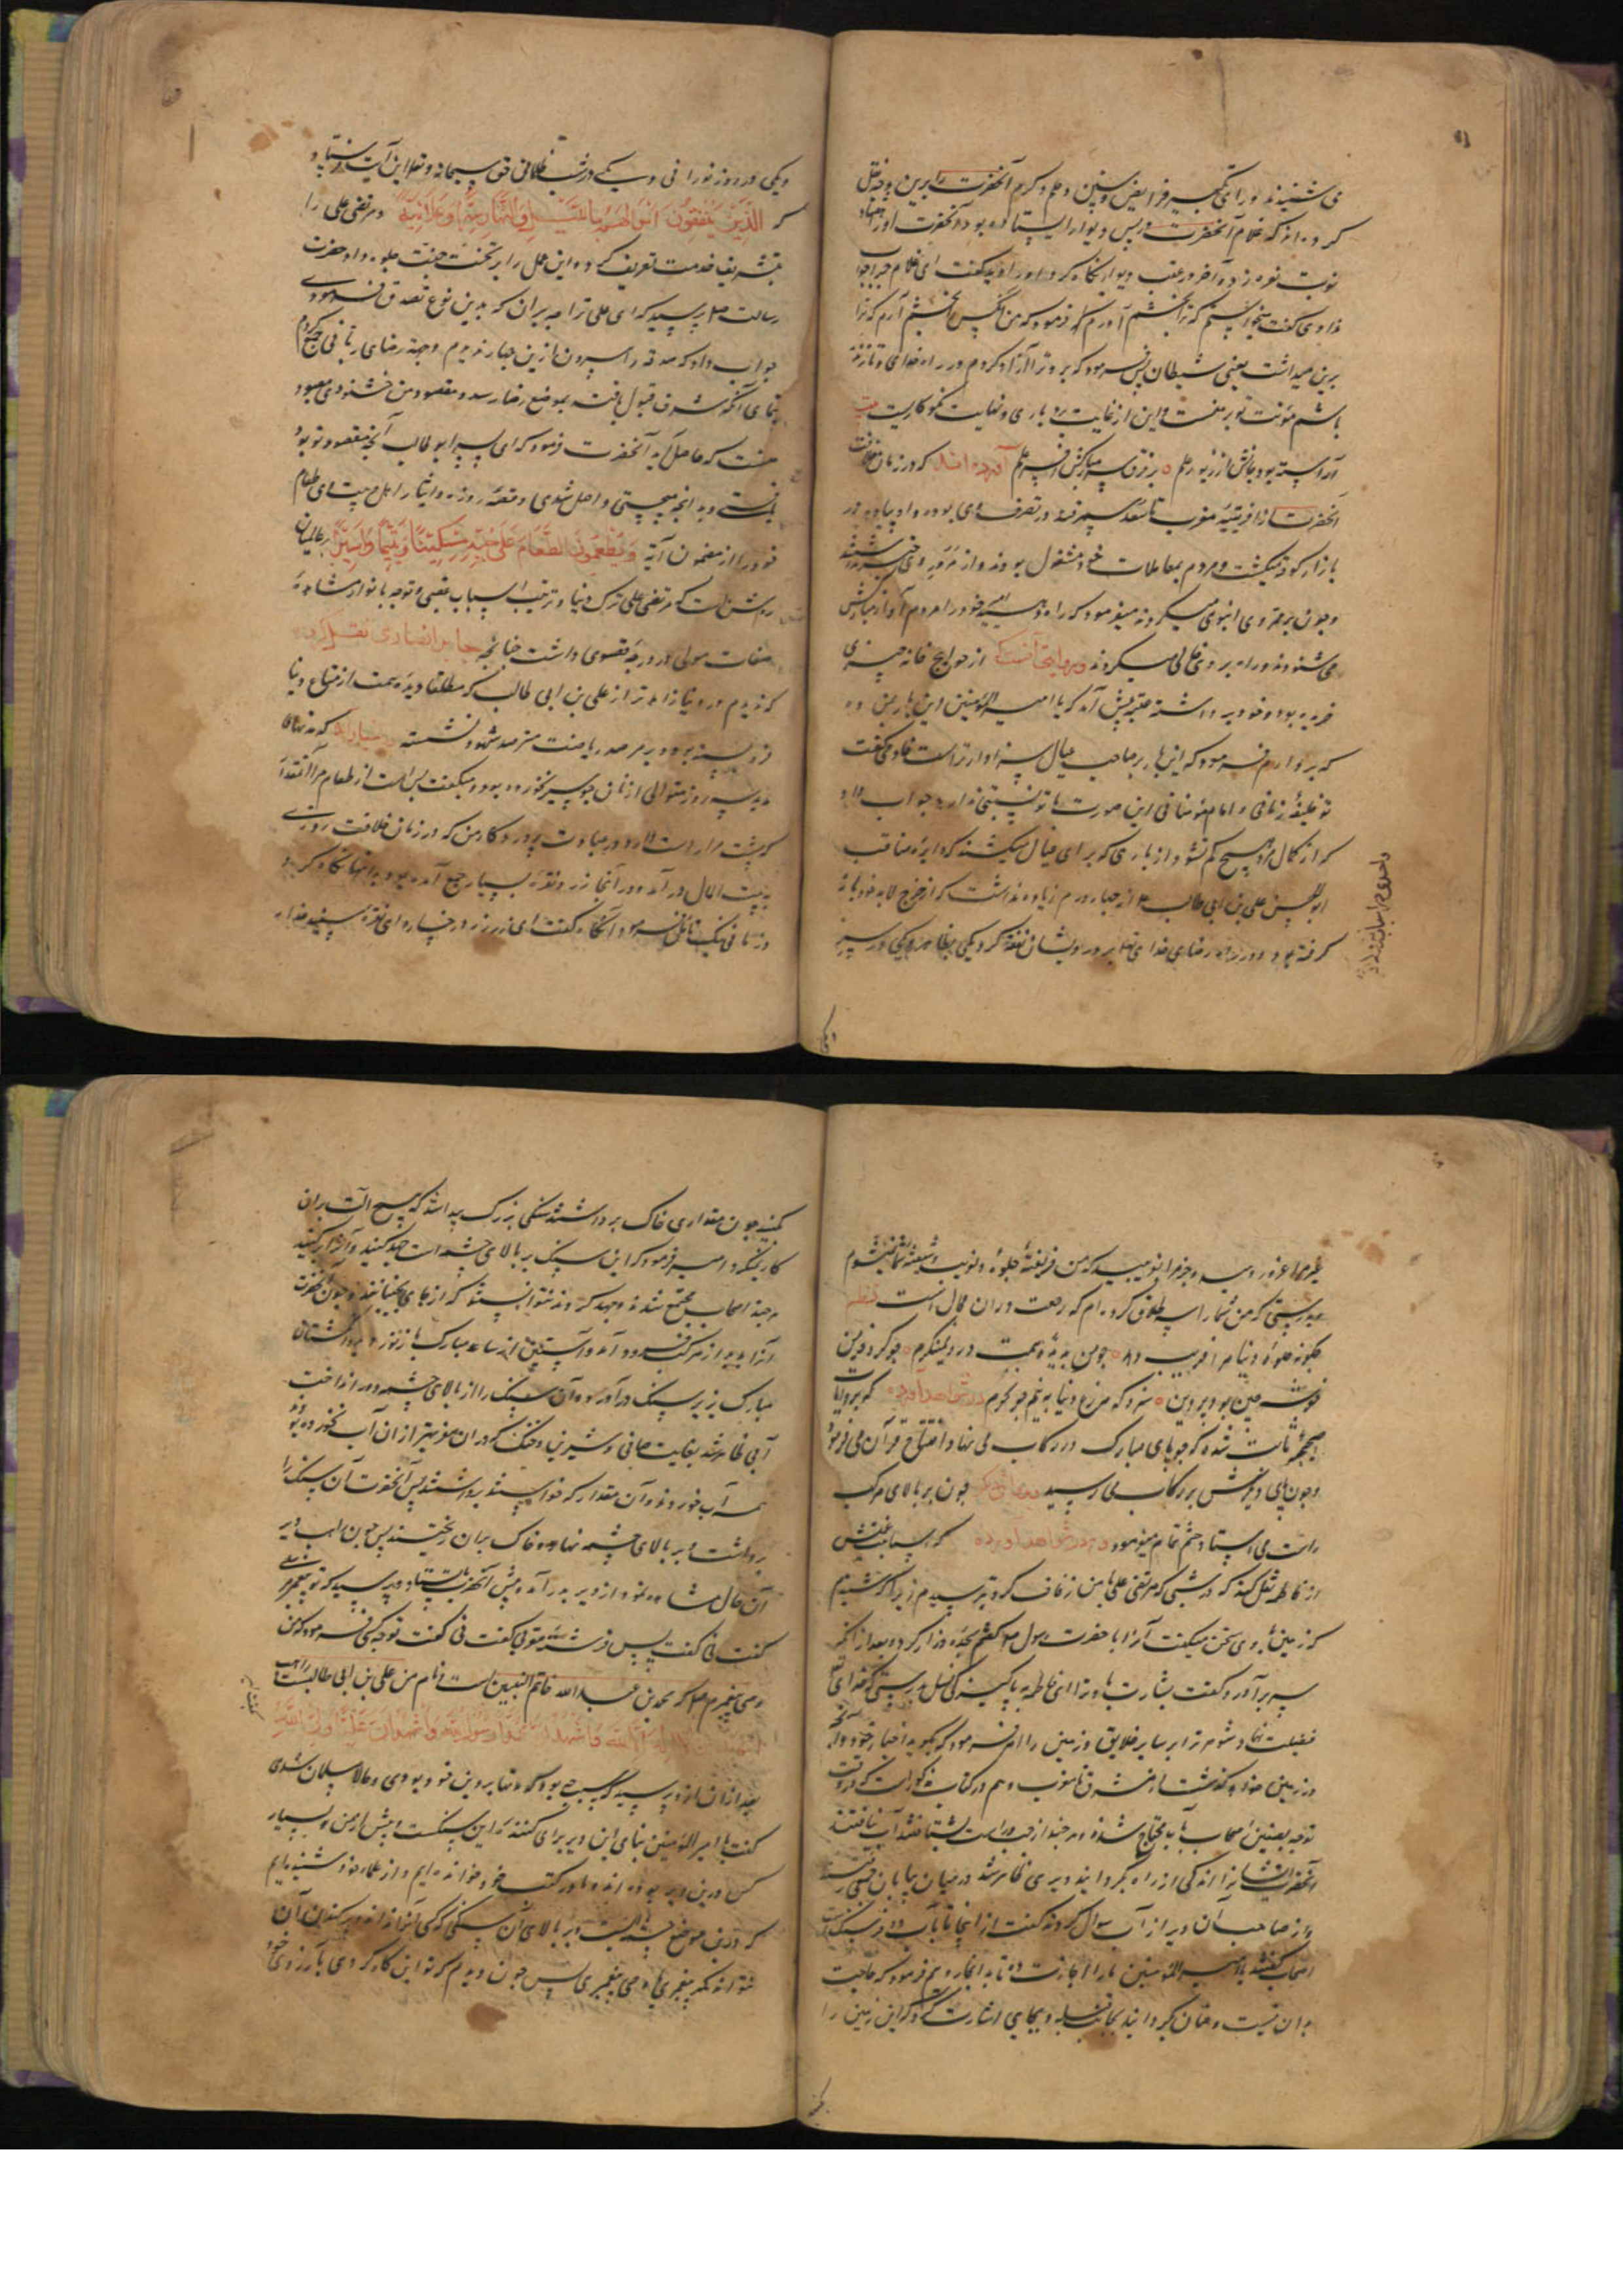 می شنیدند ورای تکبیر فرایض و سنن و حلم و کرم آنحضرت را برین وجه نقل
کرده اند که غلام آنحضرت در پس دیوار ایستاده بود و آنحضرت او را هفتاد
نوبت نعره زد و آخر در عقب دیوار نگاه کرد او را دید گفت ای غلام چرا جواب
ندادی گفت میخواستم که ترا بخشم آورم فرمود که من آنکس بخشم آرم که ترا
برین میداشت یعنی شیطان پس فرمود که برو ترا آزاد کردم در راه خدای و تا زنده
باشم مؤنت تو بر منست و این از غایت بردباری و نهایت نکوکاریست بیت
آراسته بود جانش از زیور علم بر فرق سر مبارکش افسر علم آورده اند که در زمان خلافت
آنحضرت از افریقیه مغرب تا سغد سمرقند در تصرف وی بود و او پیاده در
بازار کوفه میگشت و مردم بمعاملات خود مشغول بودند و از مرور وی خبر نداشتند
و چون بر ممر وی انبوهی میکردند میفرمود که راه دهید مردم آواز مبارکش
می شنودند و راه بر وی خالی میکردند و روایتی آنست که از حوایج خانه چیزی
خریده بود و خود برداشته قنبر پیش آمد که یا امیر المؤمنین این بار بمن ده
که بردارم فرمود که این بار بر صاحب عیال سزاوارتر است خادمی گفت
تو خلیفه زمانی و امام مؤمنانی این صورت با تو نسبتی ندارد جواب داد
که از کمال مرد هیچ کم نشود از باری که برای عیال میکشند که دایره مناقب
ابو الحسن علی بن ابی طالب از چهار درم زیاده نداشت که از خرج لابد خود باز
گرفته بود و در راه رضای خدای تعالی بر درویشان نفقه کرد یکی بظاهر و یکی در سر
ویکی در روز نورانی و یکی در شب ظلمانی حق سبحانه و تعالی این آیت فرستاد
که الَّذِينَ يُنْفِقُونَ اَمْوَالَهُمْ بِاللَّيْلِ وَالنَّهَارِ سِرًّا وَعَلَانِيَةً و مرتضی علی را
بتشریف خدمت تعریف کرده این عمل را بر تخت جنت جلوه داد حضرت
رسالت پرسید که ای علی ترا چه بر آن که بدین نوع تصدق فرمودی
جواب داد که صدقه را بیرون از این چهار ندیدم وجهه رضای ربانی جمع کردم
تا یکی شرف قبول یافته بموضع رضا رسد و مقصود من خشنودی معبود
منست که حاصل آید آنحضرت فرمود که ای پسر ابو طالب آنچه مقصود تو بود
یافتی و بدانچه میجستی واصل شدی و قصه روزه و ایثار اهل بیت وی طعام
خود را از مضمون آیه وَيُطْعِمُونَ الطَّعَامَ عَلَى حُبِّهِ مِسْكِينًا وَيَتِيمًا وَاَسِيرًا بر عالمیان
روشن است که مرتضی علی ترک دنیا و ترتیب اسباب عقبی و توجه بانوار مشاهده
صفات مولی در درجه قصوی داشت چنانچه جابر انصاری نقل کرده
که ندیدم در دنیا زاهدتر از علی بن ابی طالب که مطلقا دیده همت از متاع دنیا
فرو بسته بود و بر مرصد ریاضت مترصد شهود نشسته که مدتها
سه روز متوالی از نان جو سیر نخورده بود و میگفت بس است از طعام مرا آنمقدار
که پشت مرا راست دارد در عبادت پروردگار من که در زمان خلافت روزی
به بیت المال در آمد و در آنجا زر و نقره بسیار جمع آمده بود بدانها نگاه کرد و
زمانی نیک تأمل فرمود آنگاه گفت ای زرد زرد رخساره ای نقره سپید عذار
غیر مرا غرور دهید و جز مرا فریبید که من فریفته جلوه و شیفته شما نمیشوم
بدرستی که من شما را سه طلاق کرده ام که رجعت در آن محال است نظم
چگونه جلوه دنیا مرا فریب دهد چو من بدیده همت در و نمینگرم
و در شواهد آورده که بروایات
صحیحه ثابت شده که چو پای مبارک در رکاب می نهاد افتتاح قرآن می فرمود
و چون پای دیگرش بر رکاب می رسید و روایتی دیگر چون بر بالای مرکب
راست می ایستاد ختم تمام میفرمود و هم در شواهد آورده که اسما بنت عمیس
از فاطمه نقل کند که در شبی که مرتضی علی با من زفاف کرد بترسیدم زیرا که شنیدم
که زمین با وی سخن میگفت آنرا با حضرت رسول گفتم سجده دراز کرد و بعد از آن
سر برآورد و گفت بشارت باد ترا ای فاطمه به پاکیزگی نسل بدرستی که خدای
فضیلت نهاد شوهر ترا بر سایر خلایق و زمین را امر فرمود که بگوید اخبار خود و آنچه
در زمین خواهد گذشت از مشرق تا مغرب و هم در کتاب مذکور است که در وقت
توجه بصفین اصحاب بآب محتاج شدند هر چند از چپ و راست بشتافتند آب نیافتند
آنحضرت ایشانرا اندکی از راه بگردانید دیری ظاهر شد در میان بیابان
از صاحب آن دیر از آب سوال کردند گفت از اینجا تا بآب دو فرسنگ است
اصحاب گفتند یا امیر المؤمنین ما را اجازت ده تا بدانجا رویم فرمود که حاجت
بدان نیست و عنان بگردانید بجانب قبله و بجایی اشارت کرد که این زمین را
بکنید چون مقداری خاک برداشتند سنگی بزرگ پیدا شد که هیچ آلت بر آن
کار نمیکرد امیر فرمود که این سنگ بر بالای چشمه است جهد کنید و آنرا بر کنید
هر چند اصحاب مجتمع شدند و جهد کردند نتوانستند که از جای بجنبانند چون آنحضرت
آنرا بدید از مرکب فرود آمد و آستین از ساعد مبارک باز نورد و انگشتان
مبارک زیر سنگ درآورد و آن سنگ را از بالای چشمه دور انداخت
آبی ظاهر شد بغایت صافی و شیرین و خنک که در آن سفر بهتر از آن آب نخورده بودند
همه آب خوردند و آن مقدار که خواستند برداشتند پس آنحضرت آن سنگ را
برداشت و بر بالای چشمه نهاد و خاک بر آن ریختند پس چون راهب دیر
آن حال مشاهده نمود از دیر بدر آمد و پیش آنحضرت بایستاد و پرسید که تو پیغمبر مرسلی
گفت نی گفت پس فرشته مقربی گفت نی گفت تو چه کسی فرمود که من
وصی پیغمبرم که محمد بن عبد الله خاتم النبیین است و نام من علی بن ابی طالبست راهب
اشهد ان لا اله الا الله و اشهد ان محمدا رسول الله و اشهد ان علیا ولی الله
بعد از آن از و پرسید که سبب چه بود که مدتها بر دین خود بودی و حالا مسلمان شدی
گفت یا امیر المؤمنین بنای این دیر برای کننده این سنگست و پیش از من بسیار
کس درین دیر بوده اند و ما در کتب خود خوانده ایم و از علماء خود شنیده ایم
که درین موضع چشمه ایست و بر بالای آن سنگی که کسی آنرا نداند و بر کندن آن
نتواند مگر پیغمبری یا وصی پیغمبری پس چون دیدم که تو این کار کردی بآرزوی خود